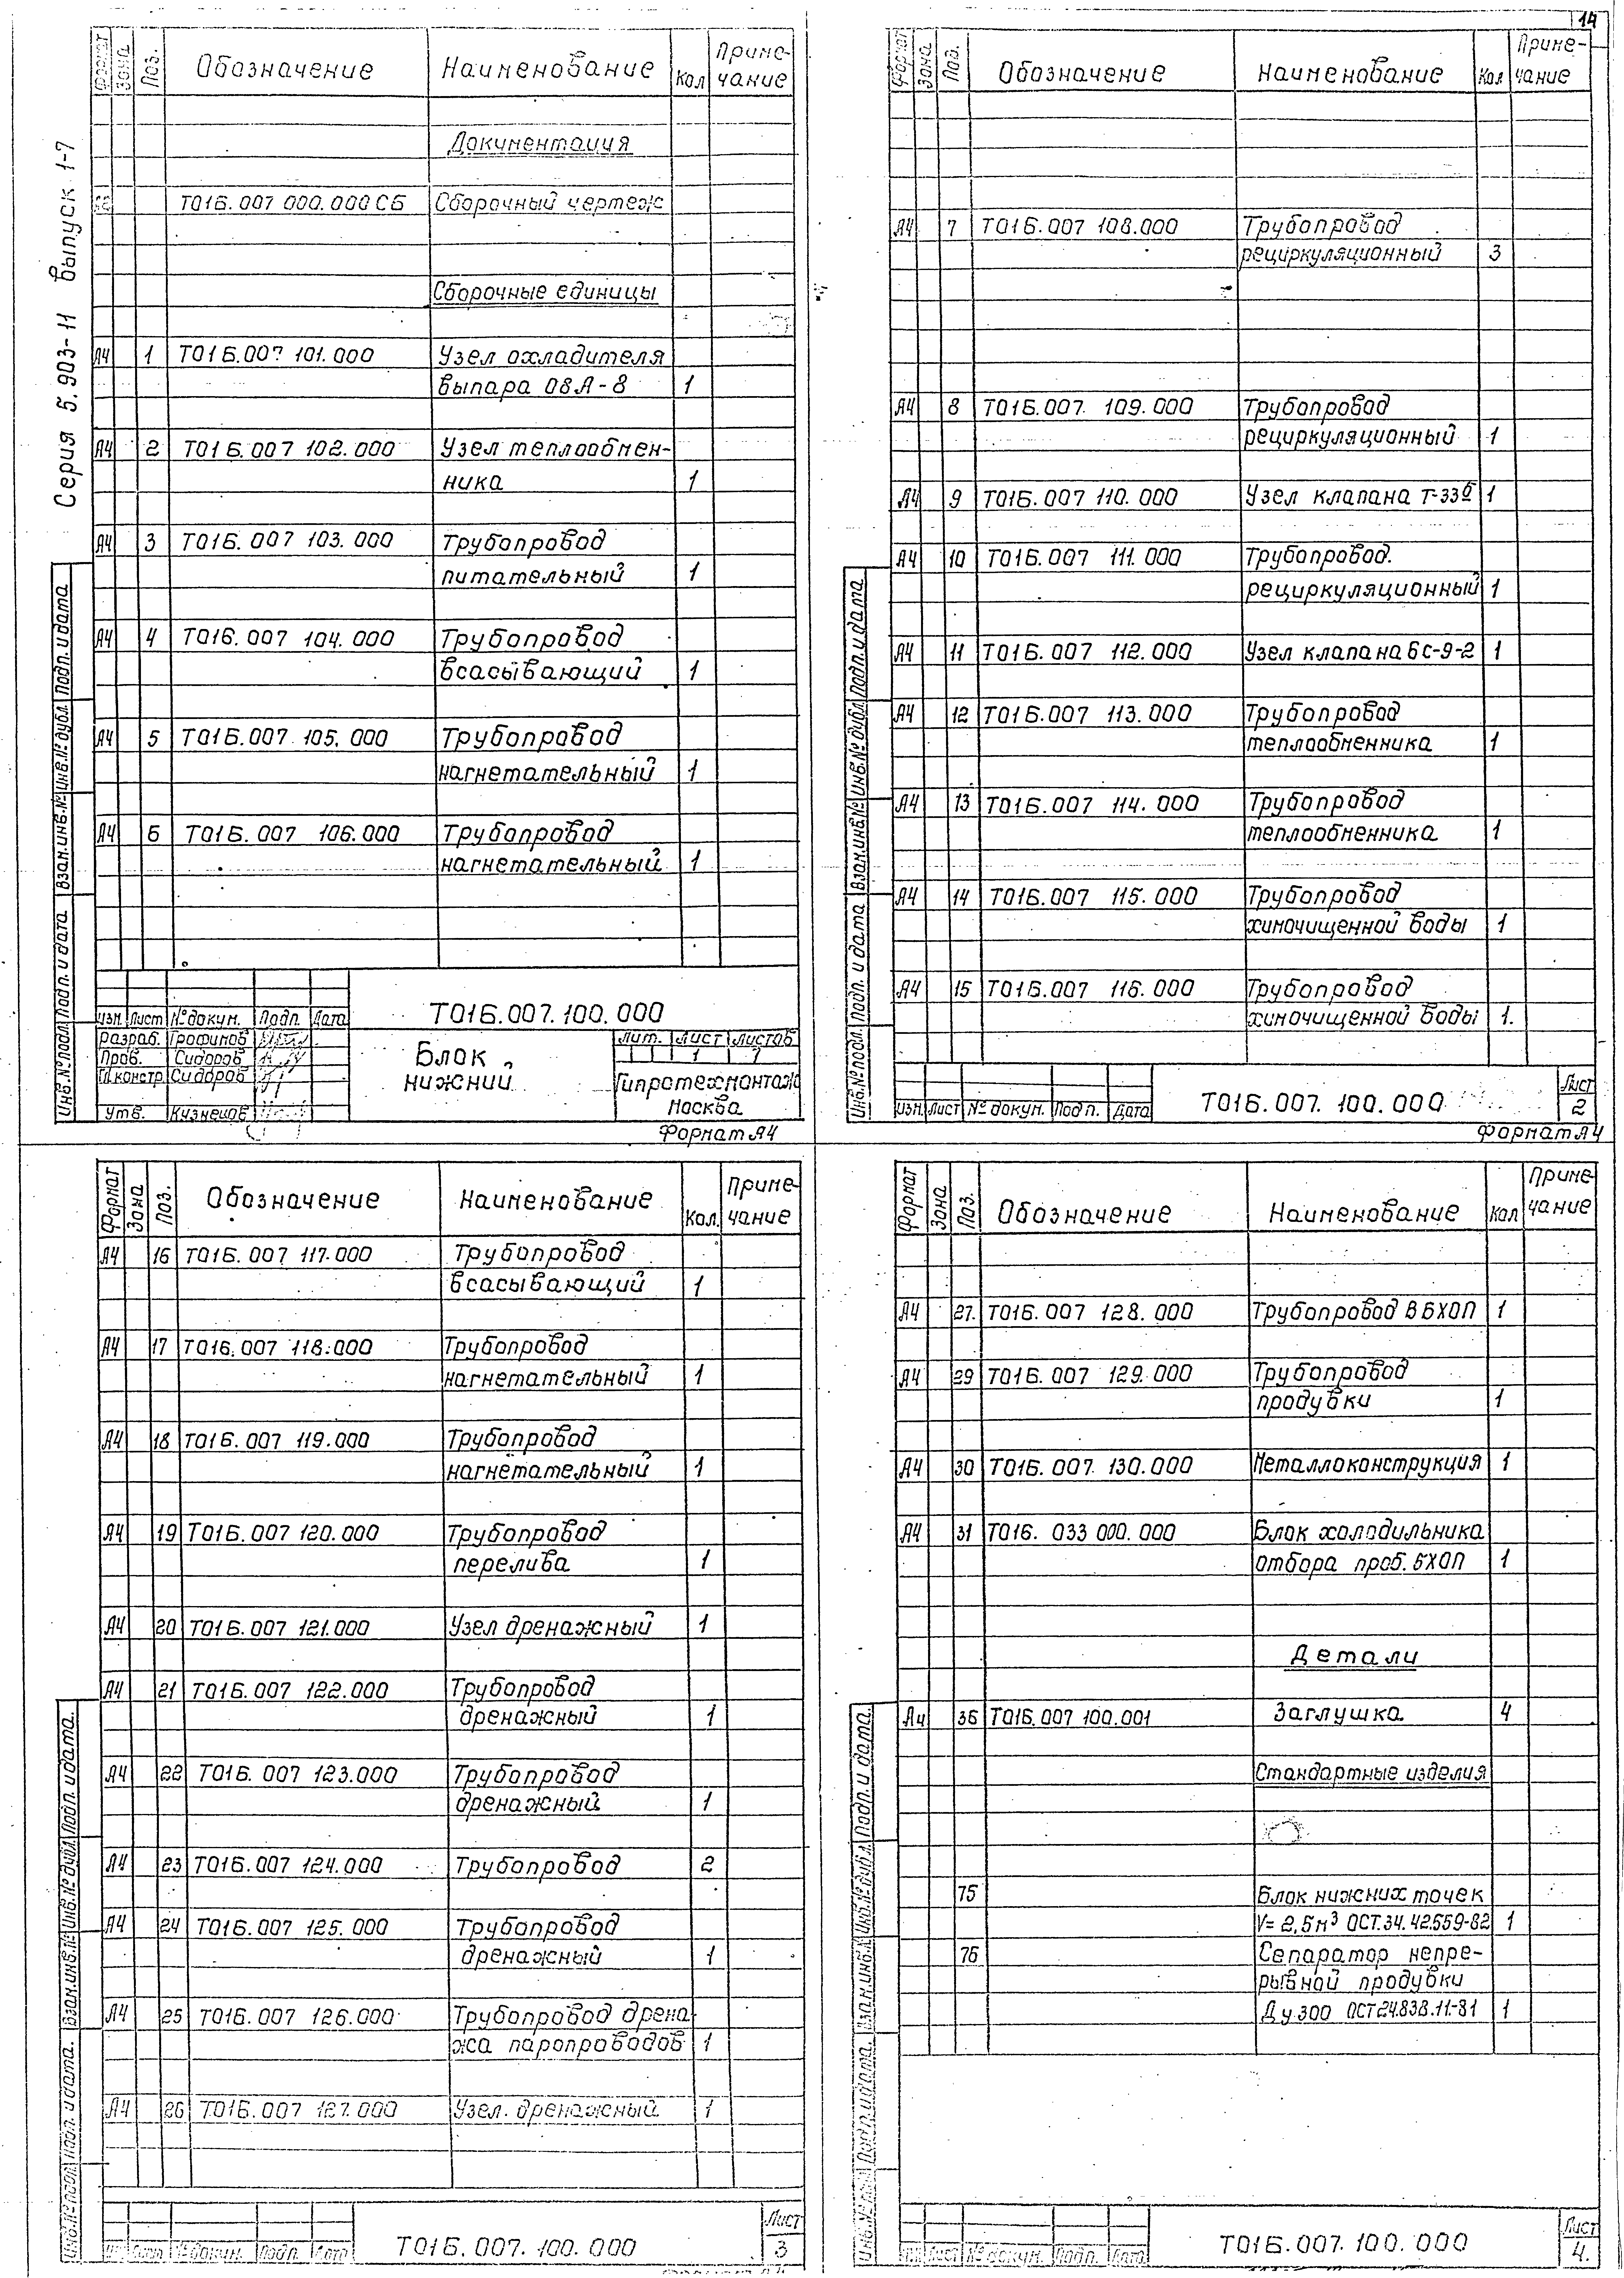 14
Серия 5.903-11 Выпуск 1-7
Формат Зона Поз. Обозначение Наименование Кол Приме-
чание
Документация
Т016.007 000.000 СБ Сборочный чертеж
Сборочные единицы
А4 1 Т016.007 101.000 Узел охладителя
выпара 08А-8 1
А4 2 Т016.007 102.000 Узел теплообмен-
ника 1
А4 3 Т016.007 103.000 Трубопровод
питательный 1
А4 4 Т016.007 104.000 Трубопровод
всасывающий 1
А4 5 Т016.007 105.000 Трубопровод
нагнетательный 1
А4 6 Т016.007 106.000 Трубопровод
нагнетательный 1
Инв.№ подл. Подп. и дата Взам.инв.№ Инв.№ дубл. Подп. и дата
Изм. Лист № докум. Подп. Дата
Разраб. Трофимов
Пров. Сидоров
Гл.констр. Сидоров
Утв. Кузнецов
Т016.007.100.000
Блок
нижний
Лит. Лист Листов
1 7
Гипротехмонтаж
Москва
Формат А4
Формат Зона Поз. Обозначение Наименование Кол Приме-
чание
А4 7 Т016.007 108.000 Трубопровод
рециркуляционный 3
А4 8 Т016.007. 109.000 Трубопровод
рециркуляционный 1
А4 9 Т016.007 110.000 Узел клапана Т-33б 1
А4 10 Т016.007 111.000 Трубопровод.
рециркуляционный 1
А4 11 Т016.007 112.000 Узел клапана 6с-9-2 1
А4 12 Т016.007 113.000 Трубопровод
теплообменника 1
А4 13 Т016.007 114.000 Трубопровод
теплообменника 1
А4 14 Т016.007 115.000 Трубопровод
химочищенной воды 1
А4 15 Т016.007 116.000 Трубопровод
химочищенной воды 1.
Инв.№ подл. Подп. и дата Взам.инв.№ Инв.№ дубл. Подп. и дата
Изм. Лист № докум. Подп. Дата
Т016.007.100.000
Лист
2
Формат А4
Формат Зона Поз. Обозначение Наименование Кол. Приме-
чание
А4 16 Т016.007 117.000 Трубопровод
всасывающий 1
А4 17 Т016.007 118.000 Трубопровод
нагнетательный 1
А4 18 Т016.007 119.000 Трубопровод
нагнетательный 1
А4 19 Т016.007 120.000 Трубопровод
перелива 1
А4 20 Т016.007 121.000 Узел дренажный 1
А4 21 Т016.007 122.000 Трубопровод
дренажный 1
А4 22 Т016.007 123.000 Трубопровод
дренажный 1
А4 23 Т016.007 124.000 Трубопровод 2
А4 24 Т016.007 125.000 Трубопровод
дренажный 1
А4 25 Т016.007 126.000 Трубопровод дрена-
жа паропроводов 1
А4 26 Т016.007 127.000 Узел. дренажный 1
Инв.№ подл. Подп. и дата. Взам.инв.№ Инв.№ дубл. Подп. и дата.
Лист № докум. Подп. Дата
Т016.007.100.000
Лист
3
Формат Зона Поз. Обозначение Наименование Кол Приме-
чание
А4 27. Т016.007 128.000 Трубопровод в БХОП 1
А4 29 Т016.007 129.000 Трубопровод
продувки 1
А4 30 Т016.007. 130.000 Металлоконструкция 1
А4 31 Т016. 033 000.000 Блок холодильника
отбора проб. БХОП 1
Детали
А4 36 Т016.007 100.001 Заглушка 4
Стандартные изделия
75 Блок нижних точек
V= 2,5м³ ОСТ.34.42.559-82 1
76 Сепаратор непре-
рывной продувки
Ду 300 ОСТ24.838.11-81 1
Инв.№ подл. Подп. и дата. Взам.инв.№ Инв.№ дубл. Подп. и дата.
Лист № докум. Подп. Дата
Т016.007.100.000
Лист
4.